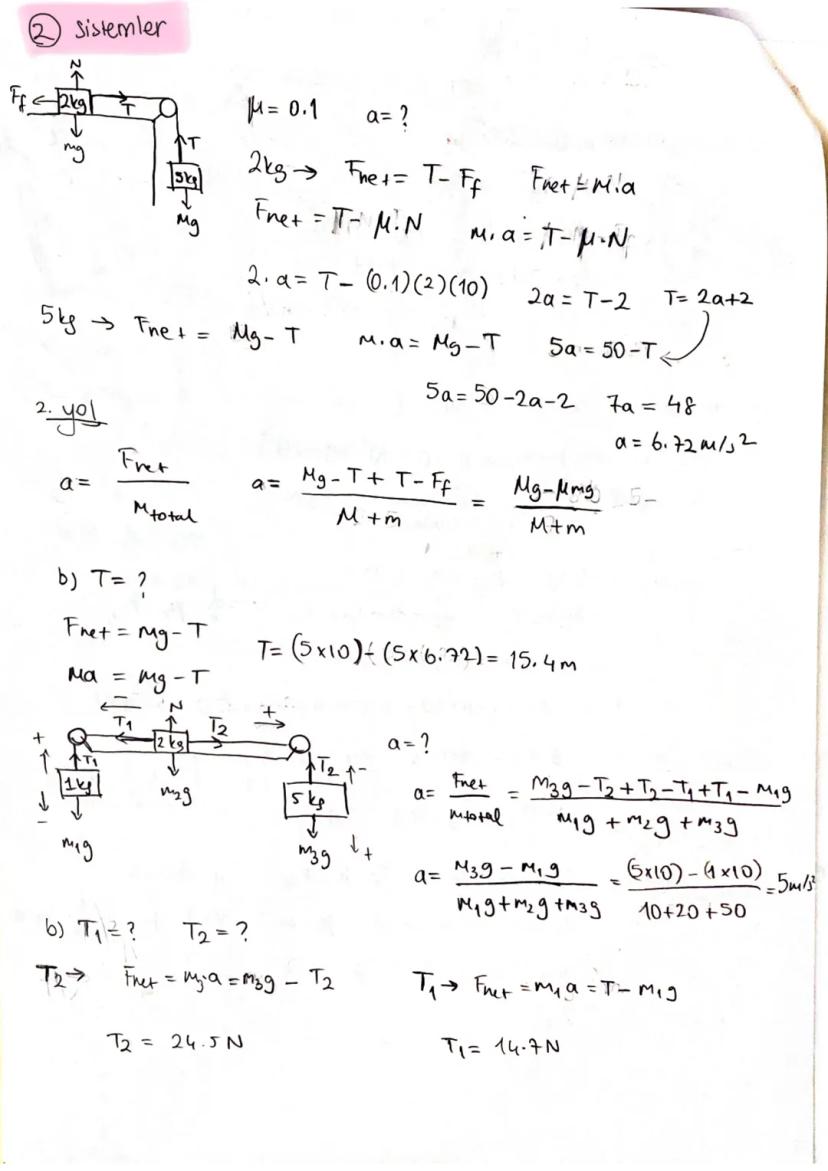 2 sistemler
N
Ff 2kg T
mg
T
5kg
Mg
μ = 0.1 a = ?
2kg → Fnet = T - Ff Fnet = m.a
Fnet = T - μ.N m.a = T - μ.N
2.a = T - (0.1)(2)(10) 2a = T-2 T = 2a+2
5kg → Fnet = Mg - T M.a = Mg - T 5a = 50 - T
5a = 50 - 2a - 2 7a = 48
a = 6.72 m/s2
2. yol
a = Fnet / Mtotal a = Mg - T + T - Ff / M + m = Mg - μmg / M+m
b) T = ?
Fnet = Mg - T
Ma = Mg - T
T = (5x10) - (5x6.72) = 15.4 m
- +
T1 N T2
+ 2 kg
T1 T2 -
1kg m2g 5 kg
-
m1g m3g +
a = ?
a = Fnet / mtotal = M3g - T2 + T2 - T1 + T1 - M1g / m1g + m2g + m3g
a = M3g - M1g / M1g + m2g + m3g = (5x10) - (1x10) / 10+20+50 = 5m/s2
b) T1 = ? T2 = ?
T2 → Fnet = M3.a = M3g - T2 T1 → Fnet = m1a = T - M1g
T2 = 24.5 N T1 = 14.7 N